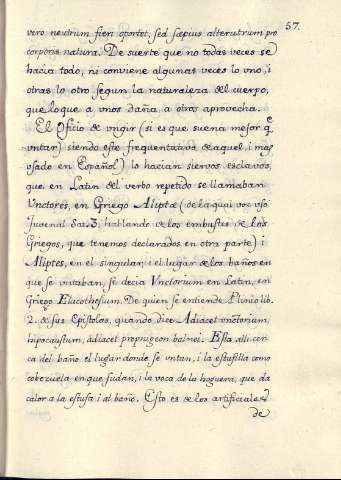 57.
vero neutrum fieri oportet, sed sæpius alterutrum pro
corporis natura. De suerte que no todas veces se
hacia todo, ni conviene algunas veces lo vno, i
otras lo otro segun la naturaleza del cuerpo,
que loque a vnos daña, a otros aprovecha.
El Oficio de vngir (si es que suena mejor q̃
vntar) siendo este freqüentativo de aquel, i mas
vsado en Español) lo hacian siervos esclavos,
que en Latin del verbo repetido se llamaban
Vnctores, en Griego Aliptæ (de la qual voz vsó
Juvenal Sat. 3, hablando de los embustes de los
Griegos, que tenemos declarados en otra parte) i
Aliptes, en el singular; i el lugar de los baños en
que se vntaban, se decia Vnctorium en Latin, en
Griego Elæothesium. De quien se entiende Plinio lib.
2. de sus Epistolas, quando dice Adiacet vnctorium,
hipocaustum, adiacet propnigeon balnei. Está alli cer-
ca del baño el lugar donde se vntan, i la estufilla como
cobezuela en que sudan, i la voca de la hoguera, que da
calor a la estufa i al baño. Esto es de los artificiales,
de